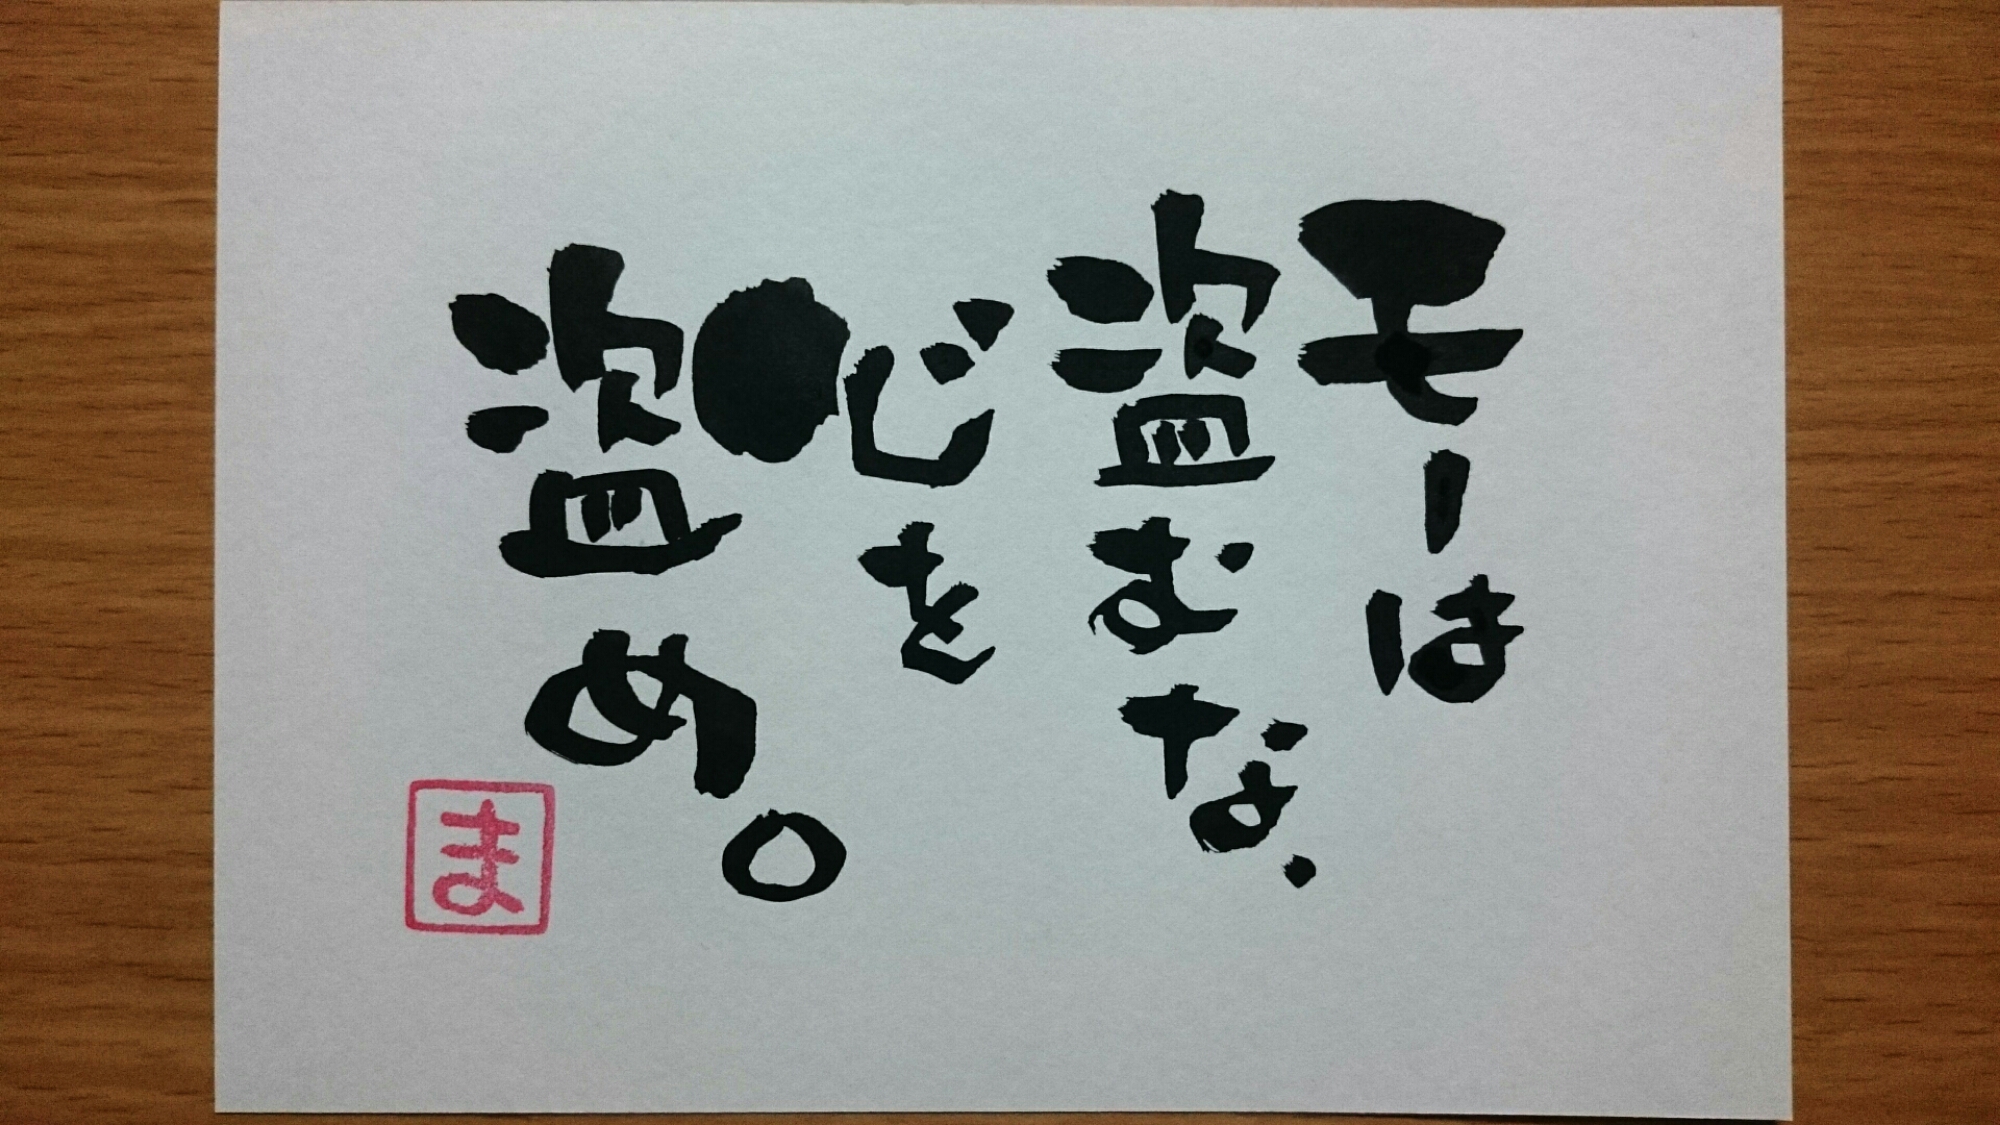 モーは
盗むな.
心を
盗め。
ま